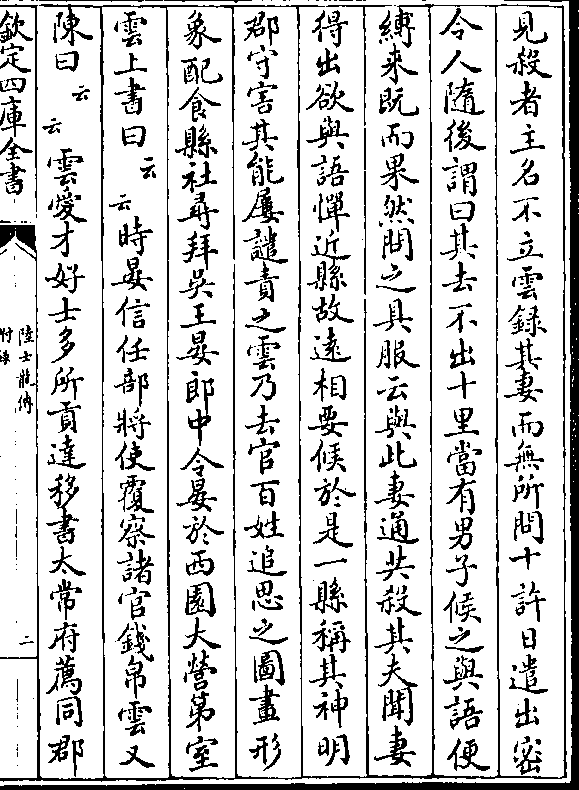 見殺者主名不立雲錄其妻而無所問十許日遣出密
令人隨後謂曰其去不出十里當有男子候之與語便
縛來既而果然問之具服云與此妻通共殺其夫聞妻
得出欲與語憚近縣故遠相要候於是一縣稱其神明
郡守害其能屢譴責之雲乃去官百姓追思之圖畫形
象配食縣社尋拜吳王晏郎中令晏於西園大營第室
雲上書曰云云時晏信任部將使覆察諸官錢帛雲又
陳曰云云雲愛才好士多所貢達移書太常府薦同郡
欽定四庫全書
陸士龍傳
附錄
二